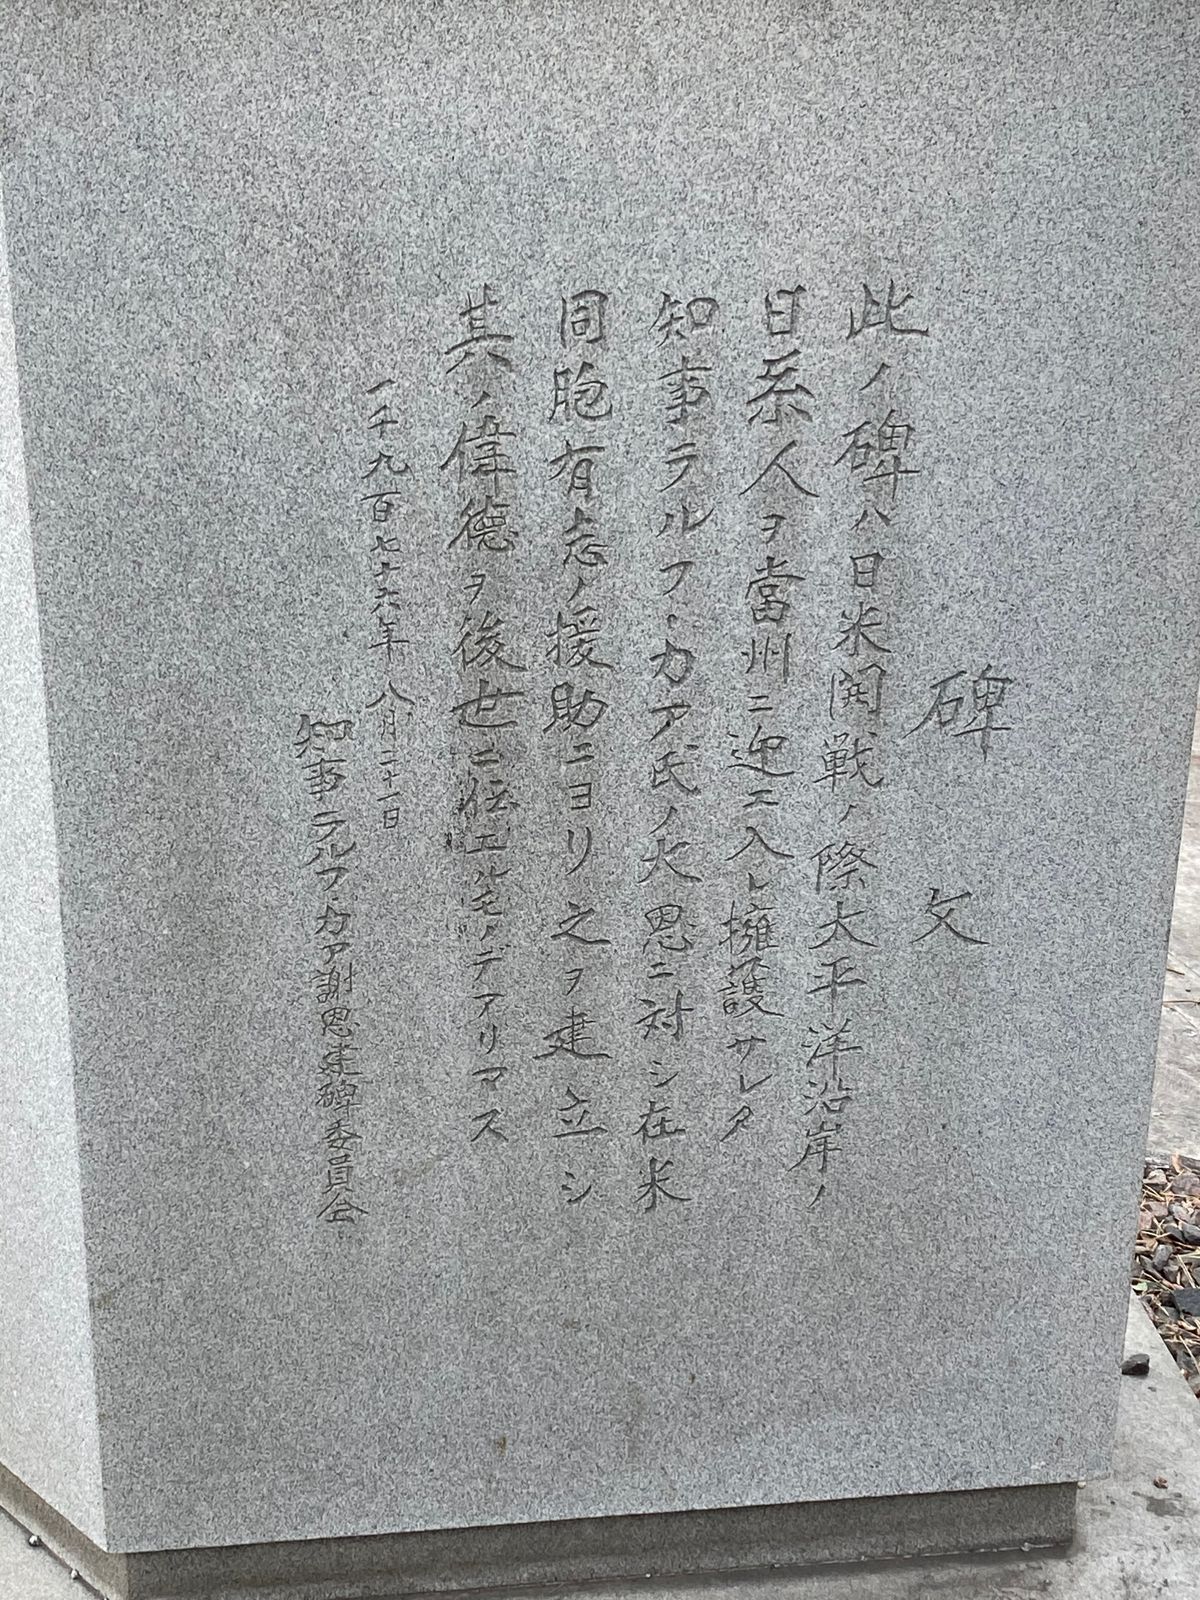 碑文
此ノ碑ハ日米開戦ノ際大平洋沿岸ノ
日系人ヲ當州ニ迎エ入レ擁護サレタ
知事ラルフ・カア氏ノ大恩ニ対シ在米
同胞有志ノ援助ニヨリ之ヲ建立シ
其ノ偉徳ヲ後世ニ伝エルモノデアリマス
一千九百七十六年八月二十一日
知事ラルフ・カア謝恩建碑委員会